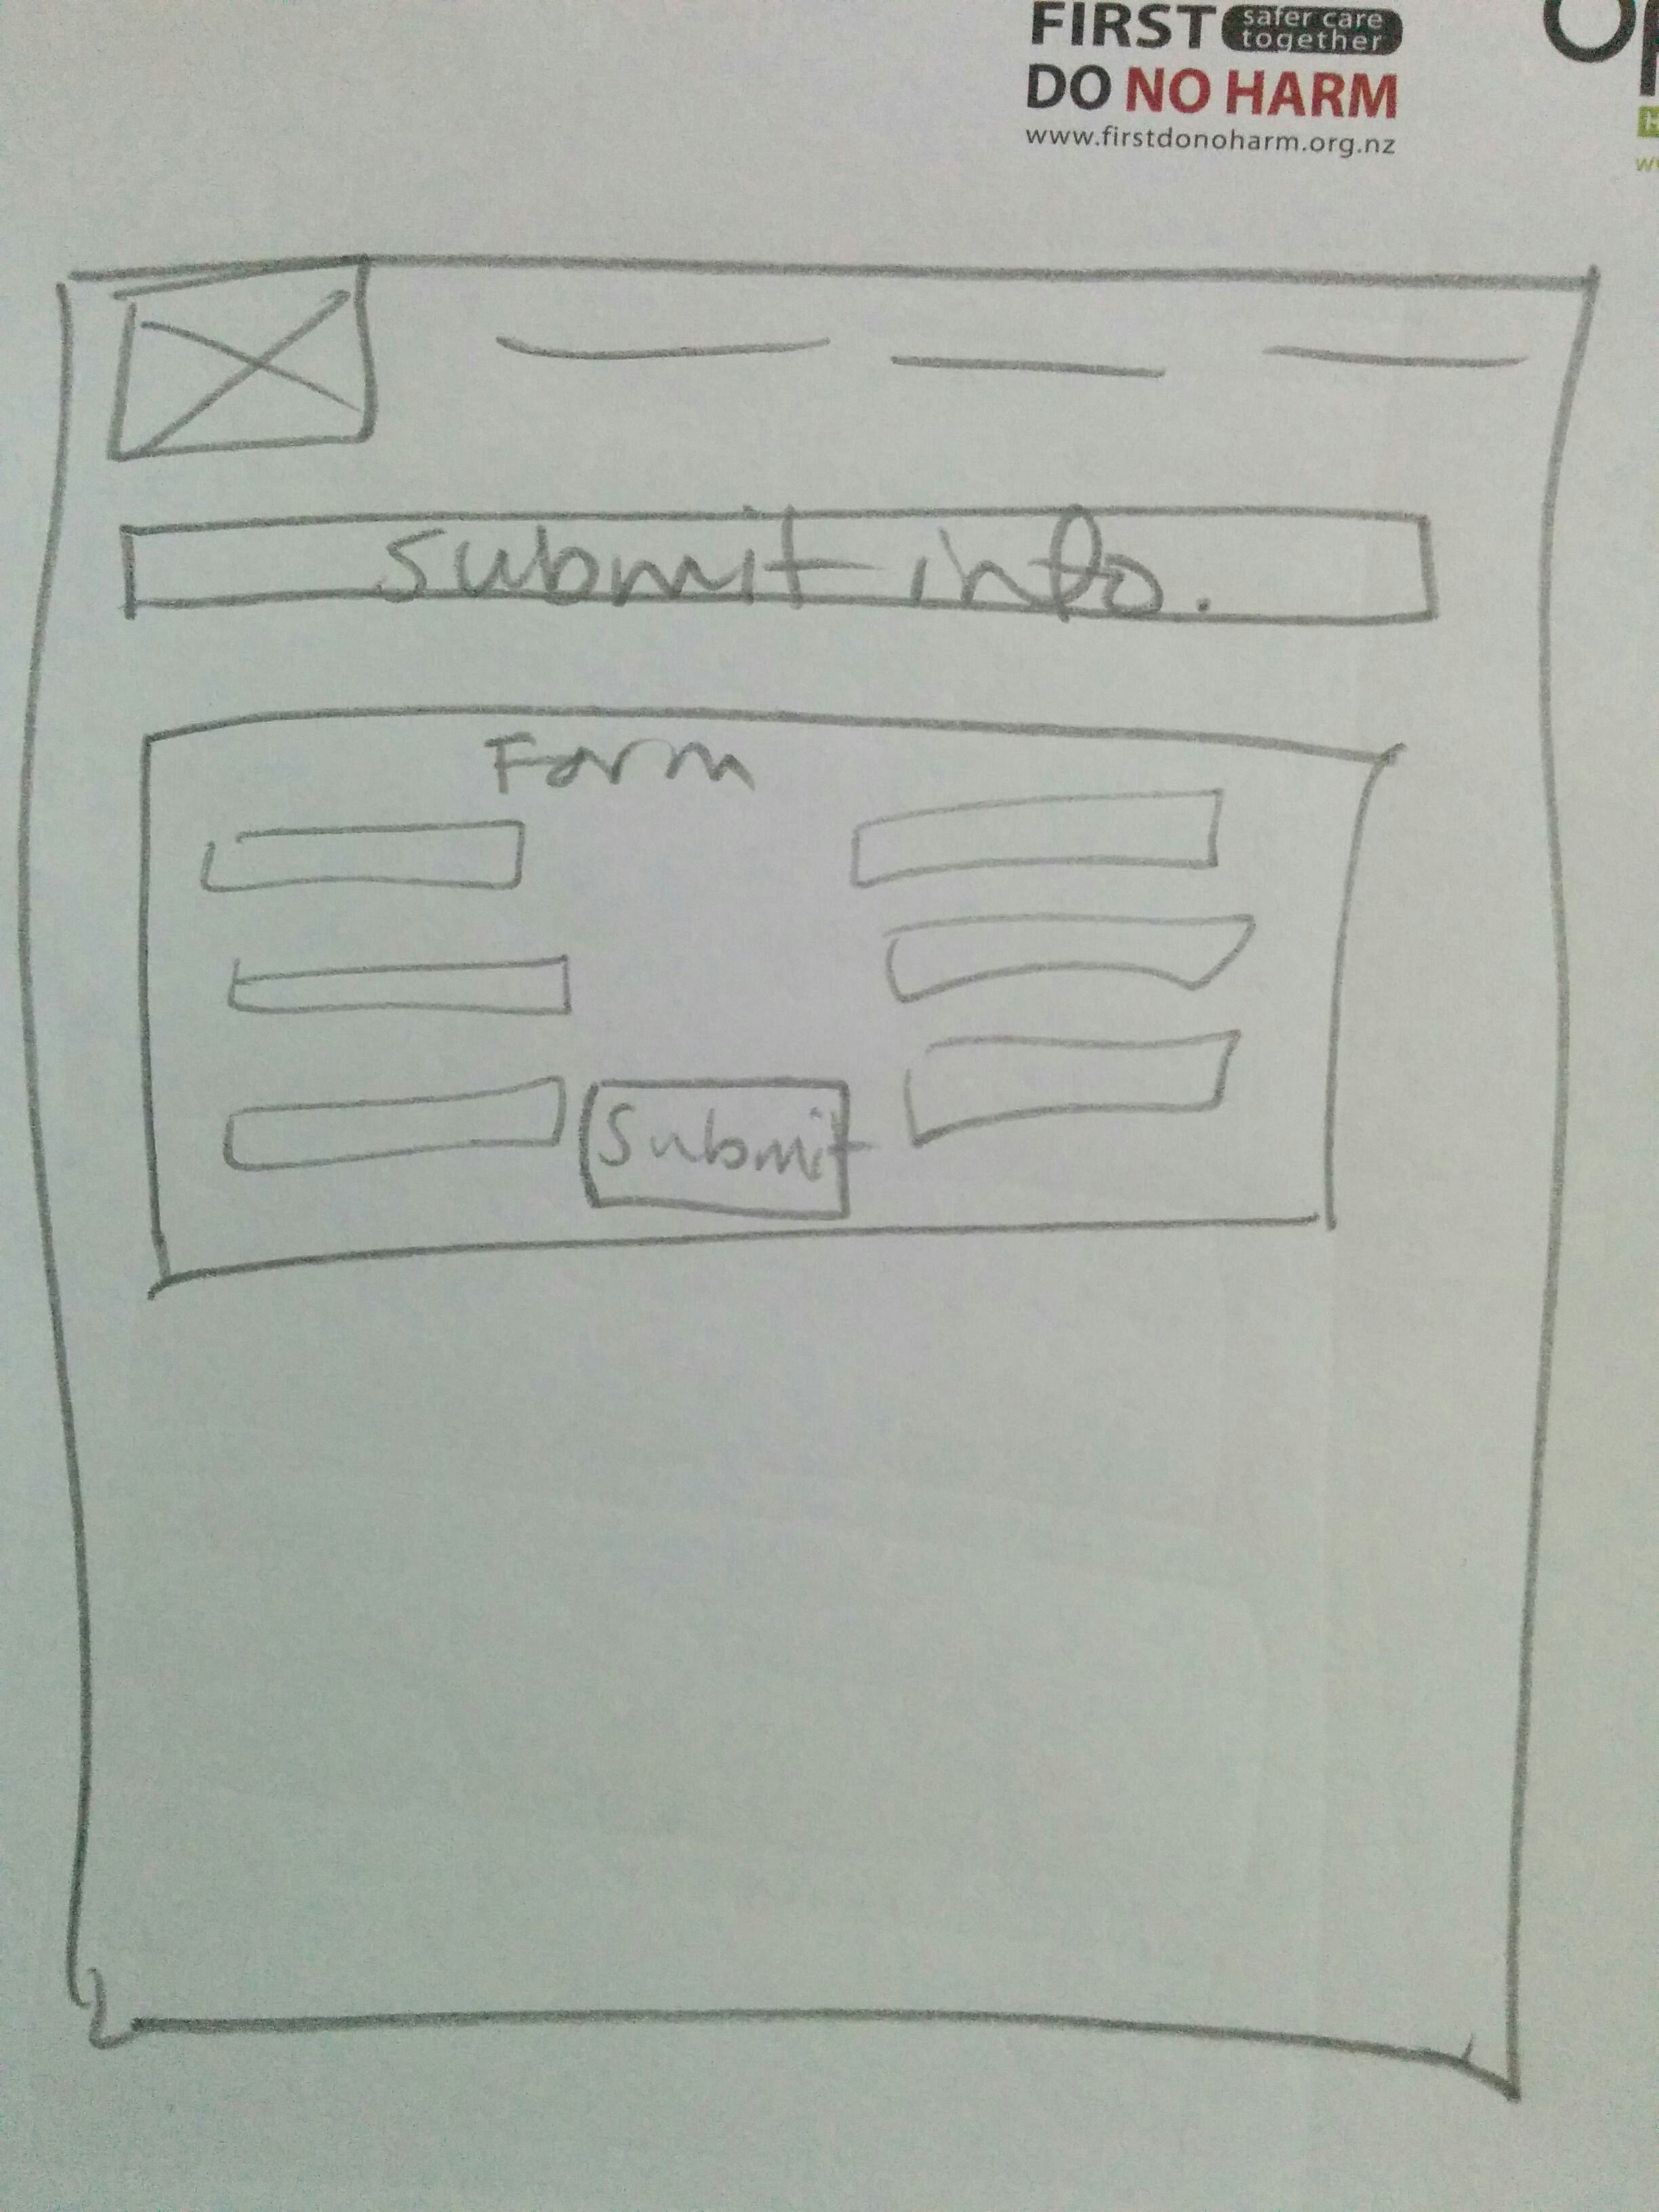 FIRST safer care together
DO NO HARM
www.firstdonoharm.org.nz
Submit info.
Form
Submit